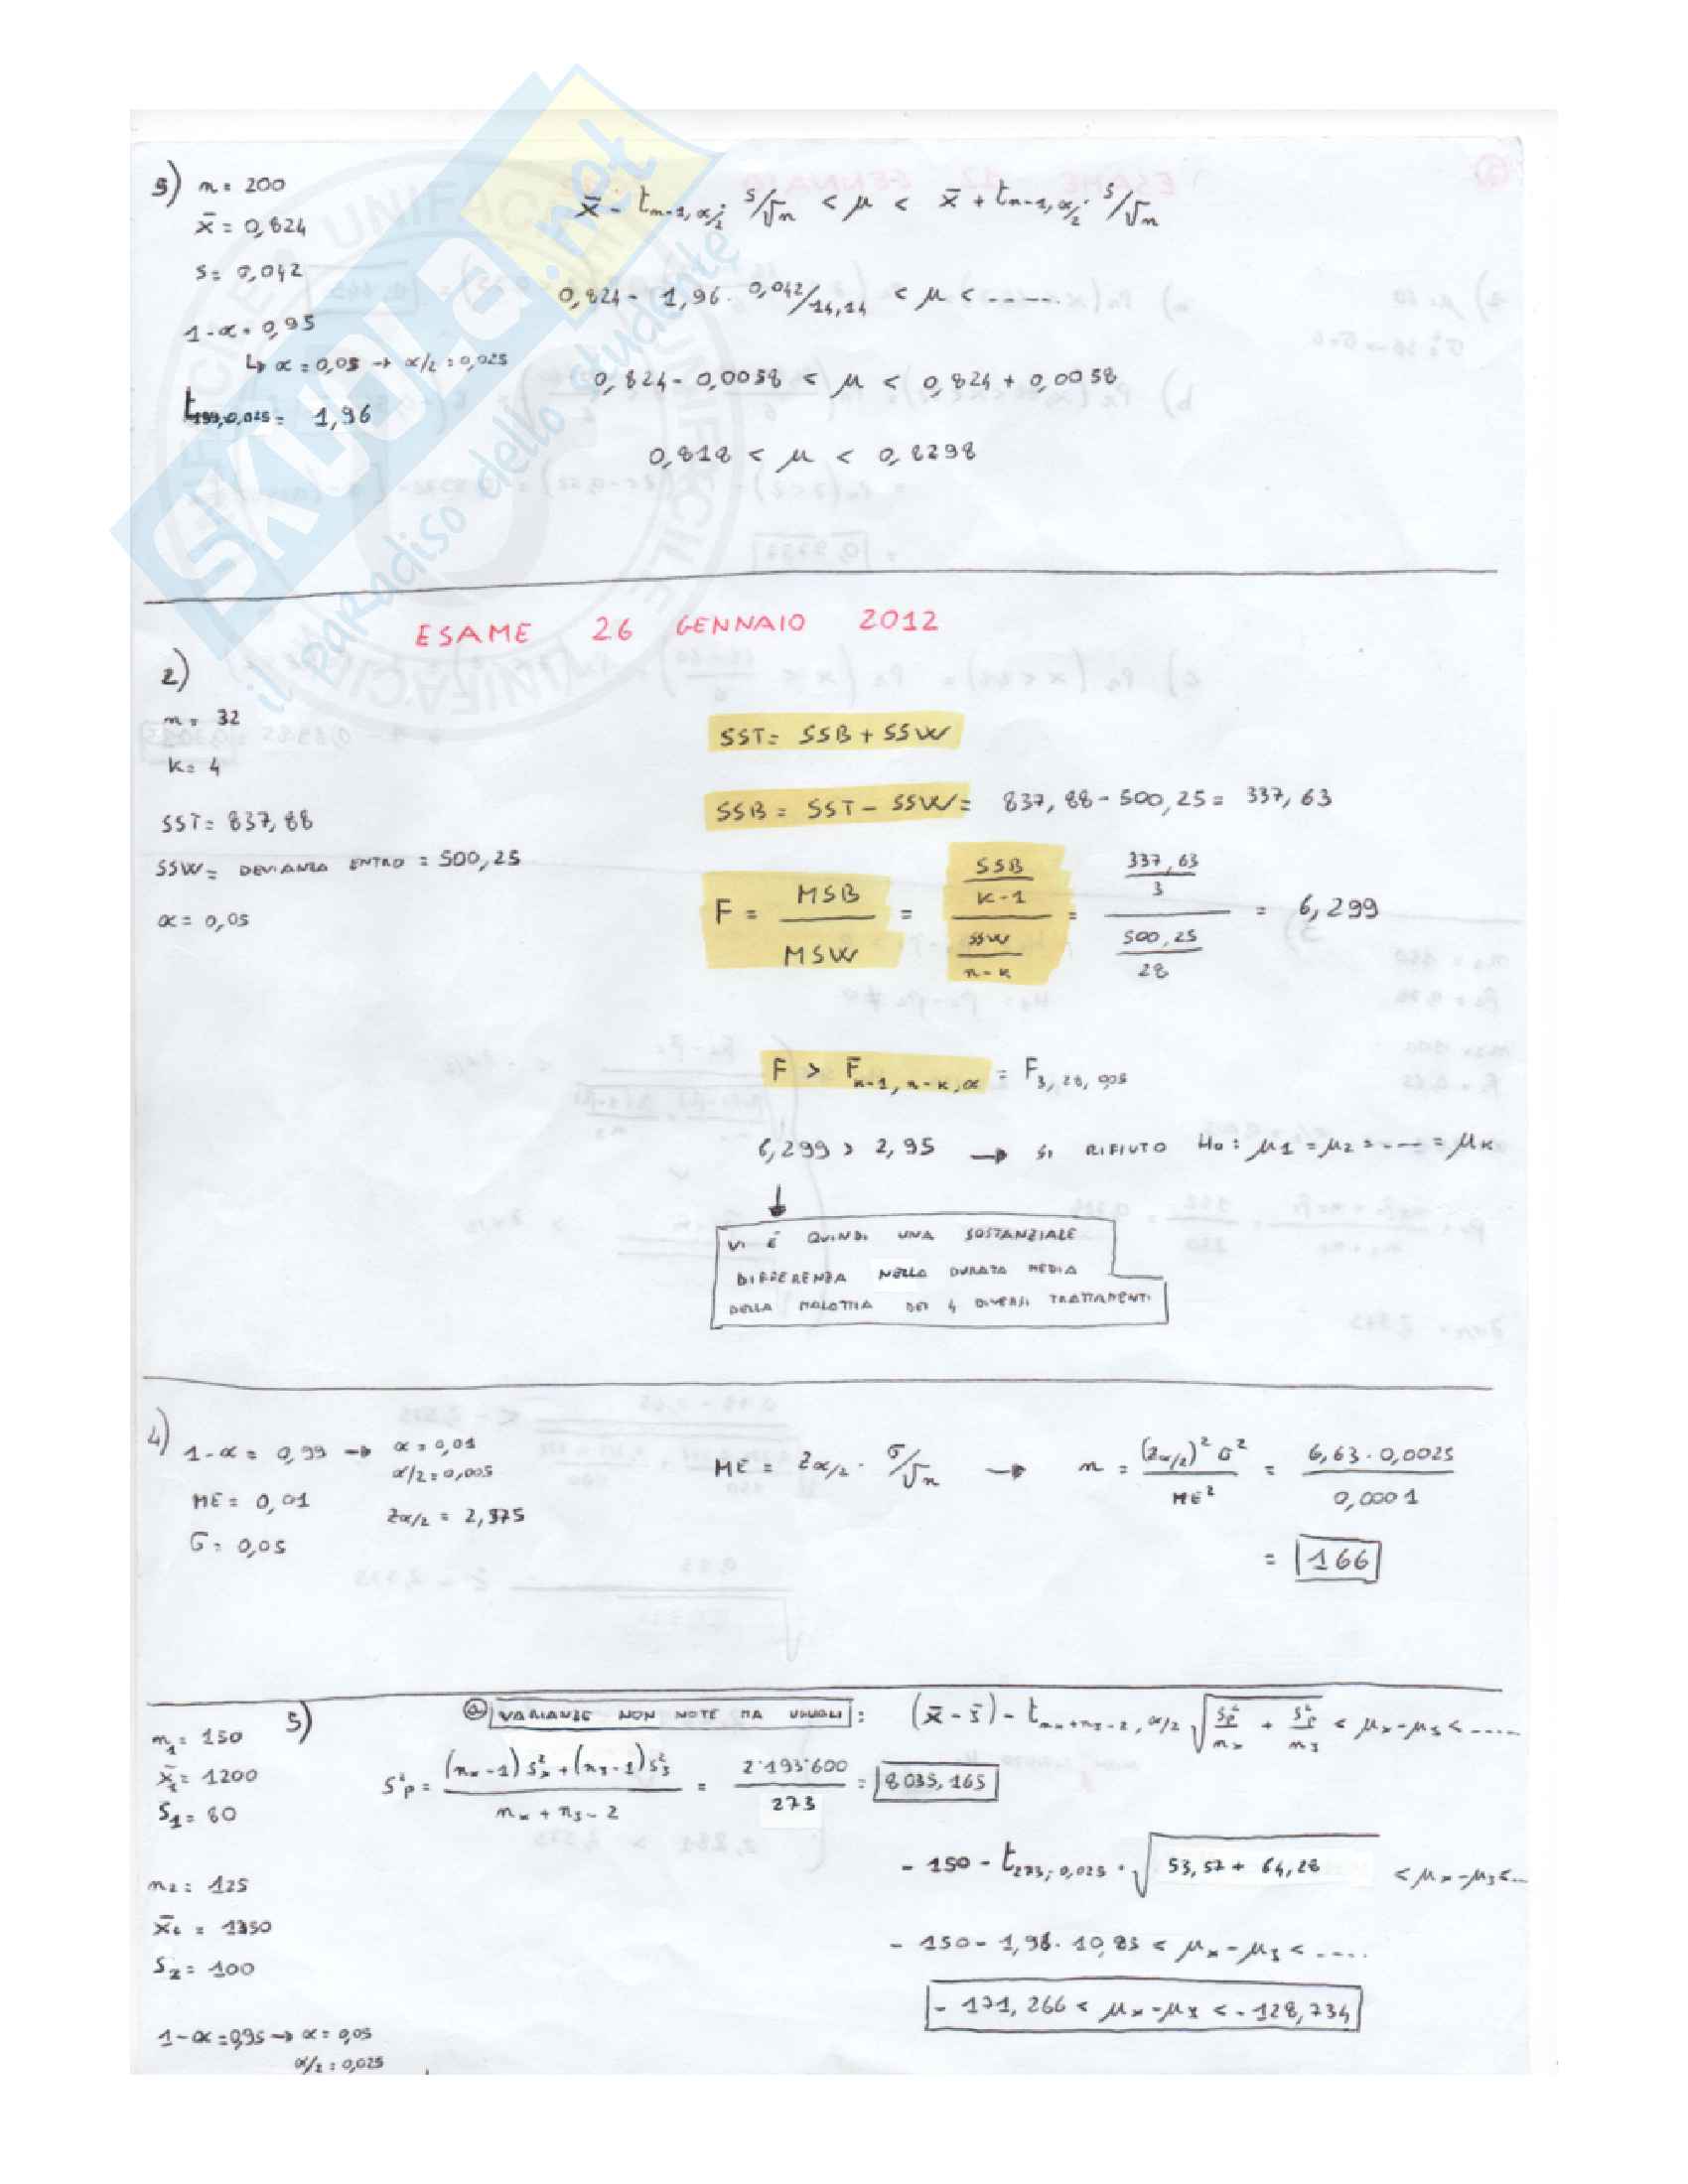 5) n = 200
x̄ = 0,824
s = 0,042
1-α = 0,95
↳ α = 0,05 → α/2 = 0,025
t199,0,025 = 1,96
x̄ - tn-1,α/2 · s/√n < μ < x̄ + tn-1,α/2 · s/√n
0,824 - 1,96 · 0,042/14,14 < μ < ......
0,824 - 0,0058 < μ < 0,824 + 0,0058
0,818 < μ < 0,8298
SKUOLA.net
il paradiso dello studente
ESAME 26 GENNAIO 2012
2)
n = 32
K = 4
SST = 837,88
SSW = DEVIANZA ENTRO = 500,25
α = 0,05
SST = SSB + SSW
SSB = SST - SSW = 837,88 - 500,25 = 337,63
F = MSB / MSW = (SSB / K-1) / (SSW / n-K) = (337,63 / 3) / (500,25 / 28) = 6,299
F > FK-1, n-K, α = F3, 28, 0,05
6,299 > 2,95 → SI RIFIUTO H0 : μ1 = μ2 = ---- = μK
↓
VI È QUINDI UNA SOSTANZIALE
DIFFERENZA NELLA DURATA MEDIA
DELLA MALATTIA DEI 4 DIVERSI TRATTAMENTI
4)
1-α = 0,99 → α = 0,01
α/2 = 0,005
ME = 0,01
zα/2 = 2,575
σ = 0,05
ME = zα/2 · σ/√n → n = (zα/2)² σ² / ME² = 6,63 · 0,0025 / 0,0001
= 166
5)
n1 = 150
x̄1 = 1200
S1 = 80
n2 = 125
x̄2 = 1350
S2 = 100
1-α = 0,95 → α = 0,05
α/2 = 0,025
a VARIANZE NON NOTE MA UGUALI : (x̄ - ȳ) - tnx+ny-2, α/2 √(S²p/nx + S²p/ny) < μx - μy < .....
S²p = (nx-1) S²x + (ny-1) S²y / nx + ny - 2 = 2'193'600 / 273 = 8035,165
- 150 - t273; 0,025 · √(53,57 + 64,28) < μx - μy < ...
- 150 - 1,96 · 10,85 < μx - μy < ....
- 171,266 < μx - μy < - 128,734